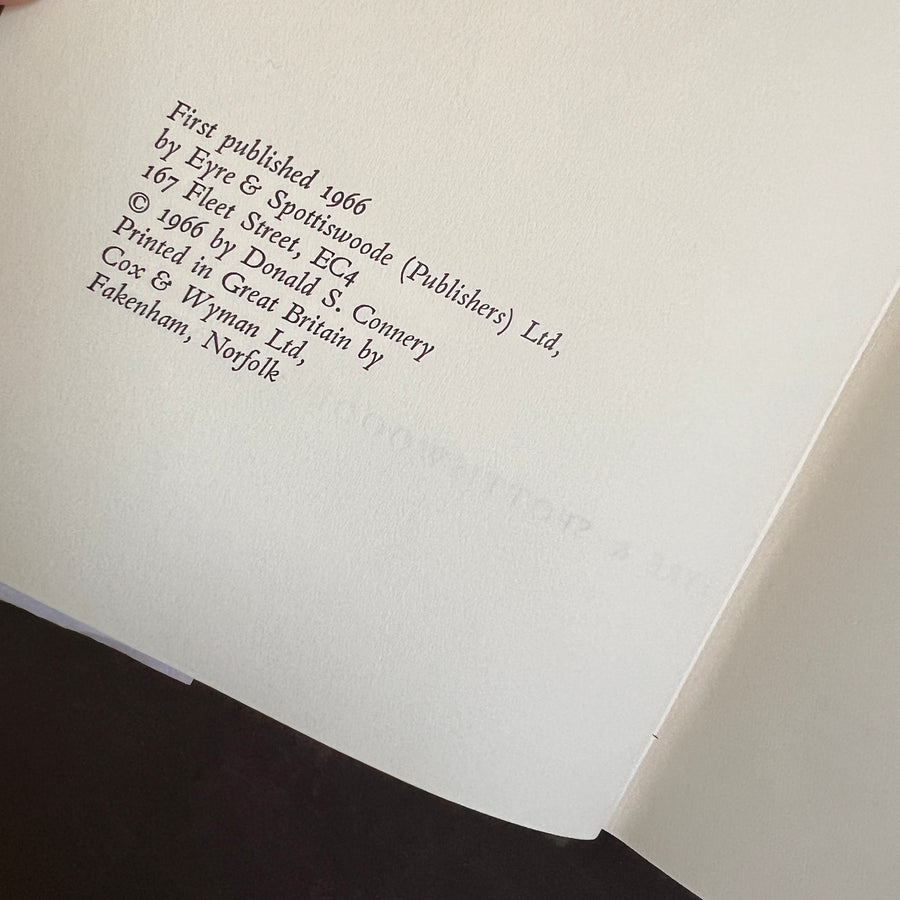 First published 1966
by Eyre & Spottiswoode (Publishers) Ltd,
167 Fleet Street, EC4
© 1966 by Donald S. Connery
Printed in Great Britain by
Cox & Wyman Ltd,
Fakenham, Norfolk